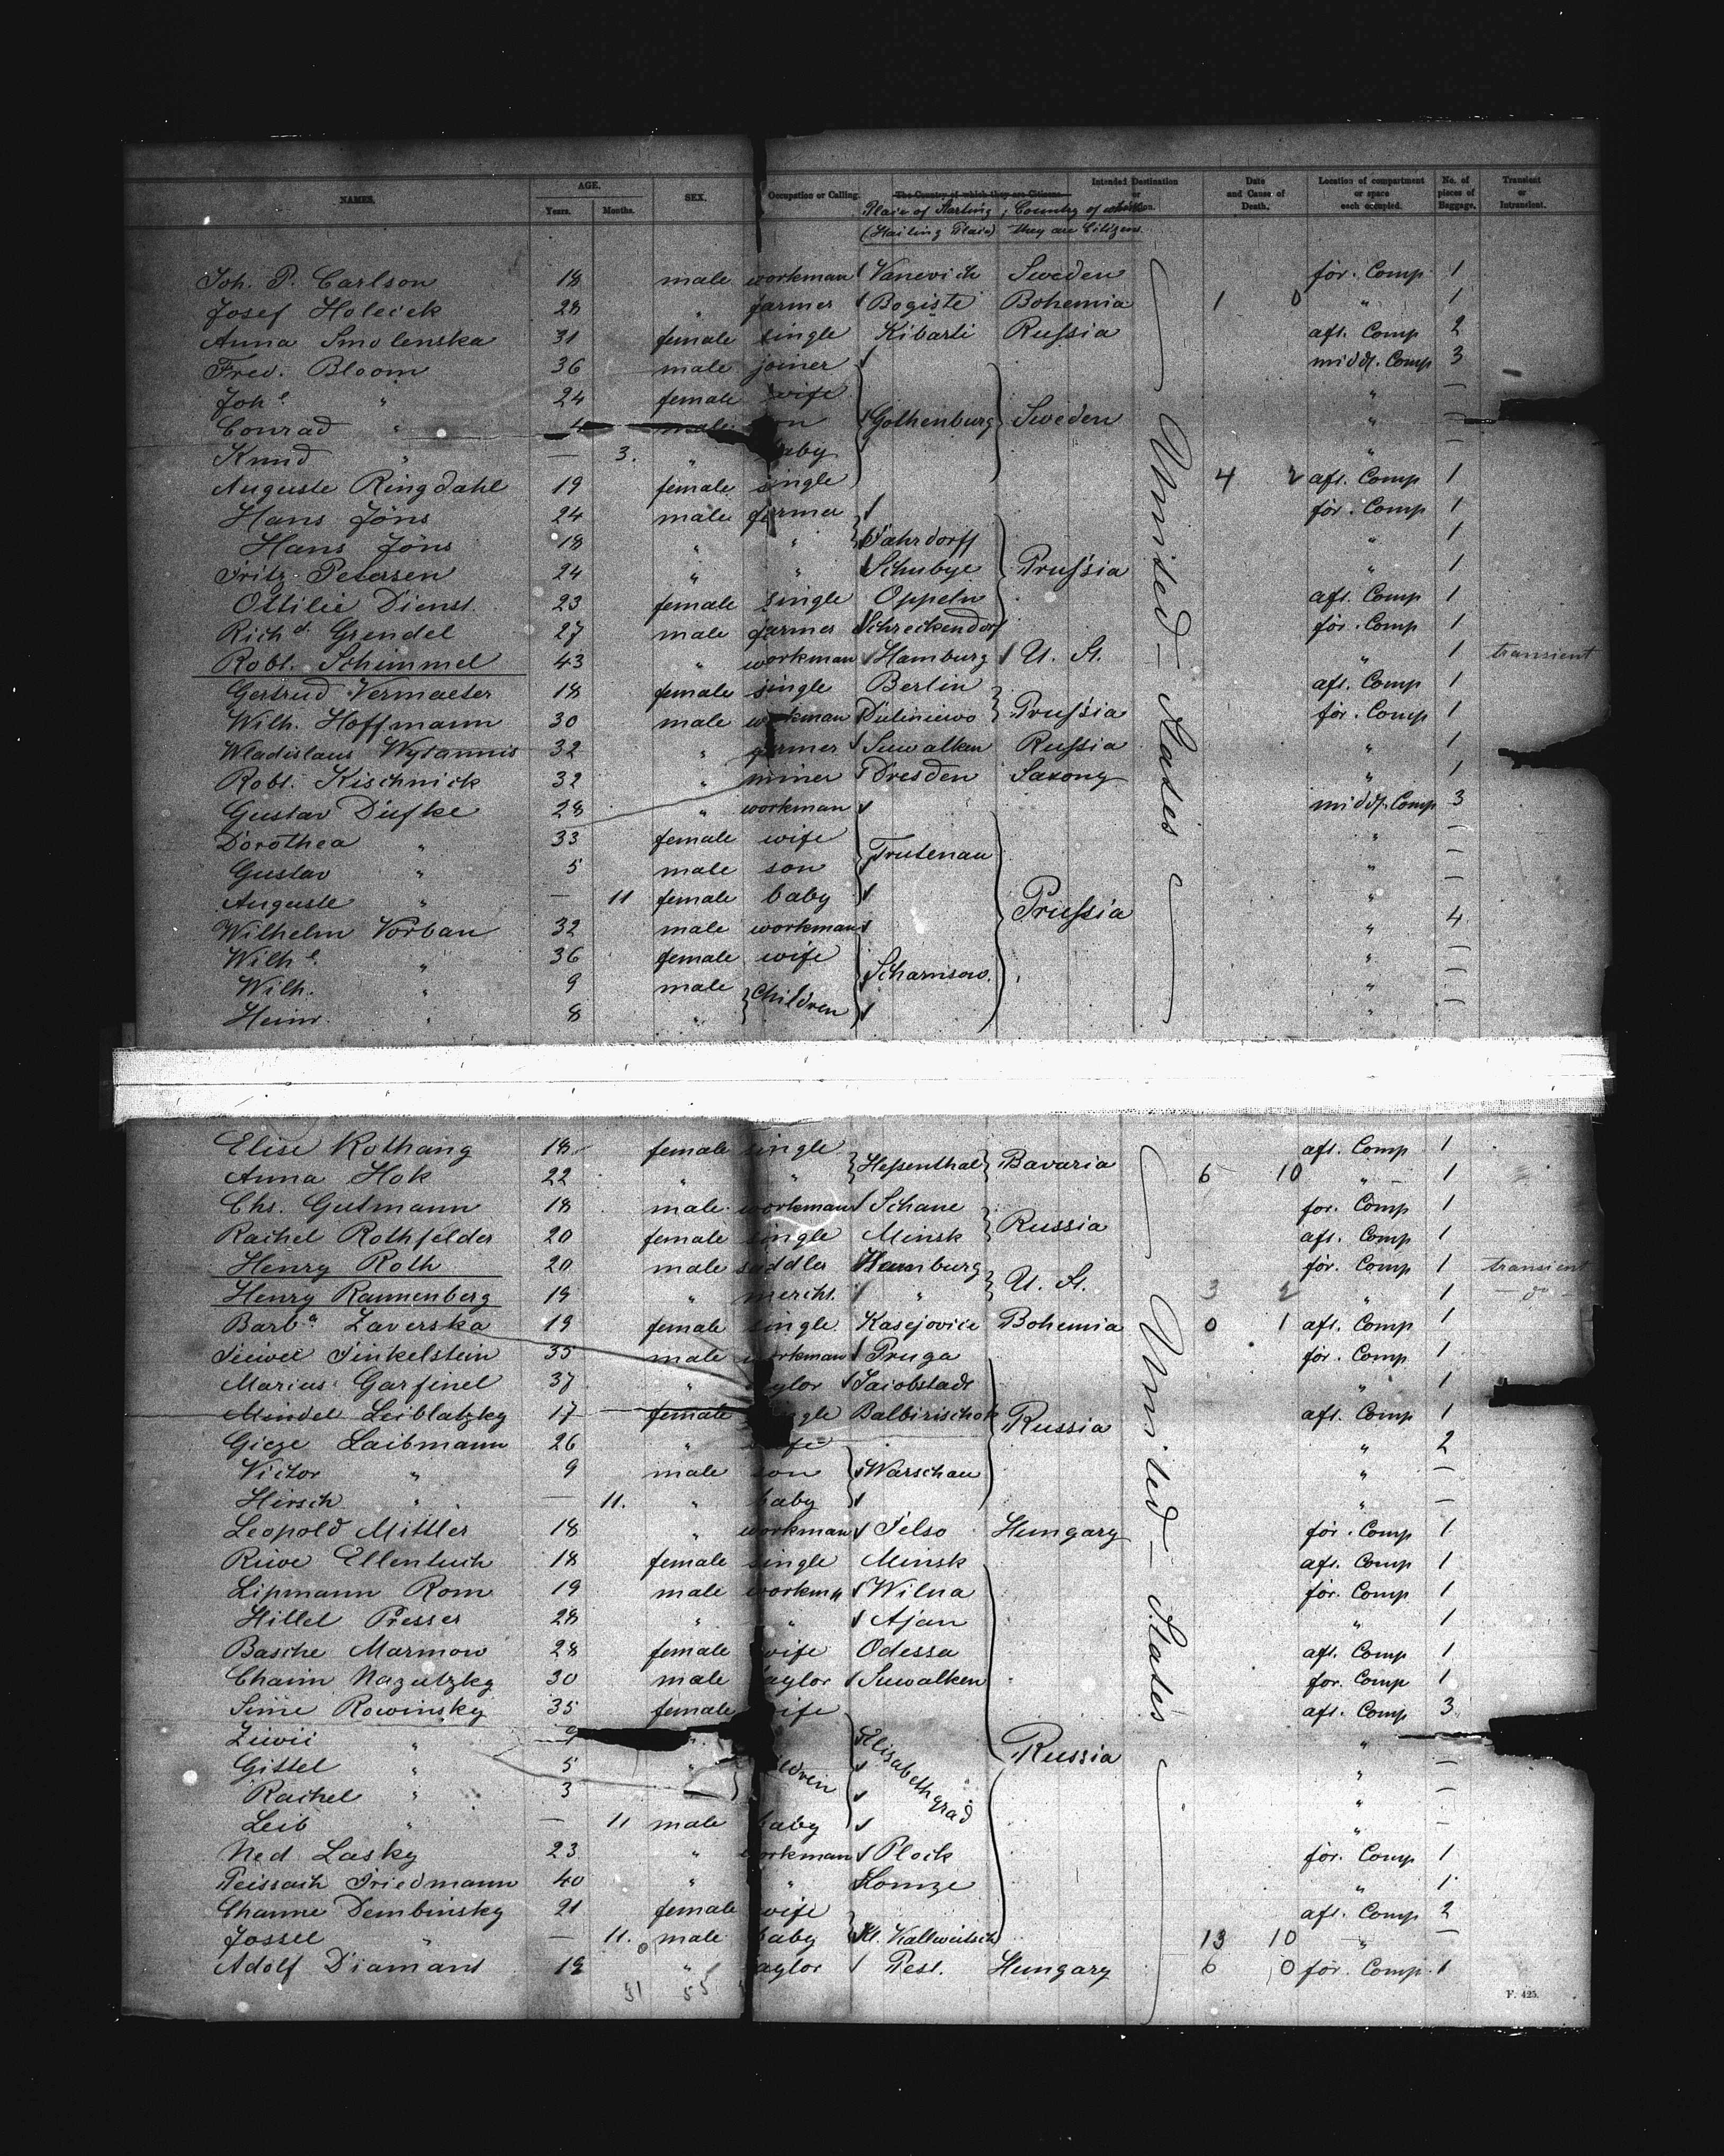 NAMES. AGE. Years. Months. SEX. Occupation or Calling. The Country of which they are Citizens. Intended Destination or Date and Cause of Death. Location of compartment or space each occupied. No. of pieces of Baggage. Transient or Intransient.
Place of Starting (Hailing Place) Country of which they are Citizens
Joh. P. Carlson 18 male workman Vanevich Sweden for. Comp 1
Josef Holecek 28 " farmer Bogiste Bohemia 1 0 " 1
Anna Smolenska 31 female single Kibarti Russia aft. Comp 2
Fred. Bloom 36 male joiner middl. Comp 3
Joh.e " 24 female wife " —
Conrad " 4 male son Gothenburg Sweden " —
Knud " — 3. " baby " —
Auguste Ringdahl 19 female single 4 2 aft. Comp 1
Hans Jöns 24 male farmer for. Comp 1
Hans Jöns 18 " " Fahrdorff " 1
Fritz Petersen 24 " " Schubye Prussia " 1
Ottilie Dienst 23 female single Oppeln aft. Comp 1
Richd. Grendel 27 male farmer Schreckendorf for. Comp 1
Robt. Schimmel 43 " workman Hamburg U. St. " 1 transient
Gertrud Vermaeter 18 female single Berlin aft. Comp 1
Wilh. Hoffmann 30 male workman Duliniewo Prussia for. Comp 1
Wladislaus 32 " farmer Suwalken Russia " 1
Robt. Kischnick 32 " miner Dresden Saxony " 1
Gustav Dufke 28 " workman middl. Comp 3
Dorothea " 33 female wife " —
Gustav " 5 male son Trutenau " —
Auguste " — 11 female baby Prussia " —
Wilhelm Vorbau 32 male workman " 4
Wilh.e " 36 female wife " —
Wilh. " 9 male Children Scharnsow. " —
Heinr. " 8 " " —
United States
Elise Rothang 18 female single aft. Comp 1
Anna Hok 22 " " Hessenthal Bavaria 6 10 " 1
Chs. Gutmann 18 male workman Schane for. Comp 1
Rachel Rothfelder 20 female single Minsk Russia aft. Comp 1
Henry Roth 20 male saddler Hamburg for. Comp 1 transient
Henry Rannenberg 19 " merchs. " U. St. 3 2 " 1 — do —
Barba. Zaverska 19 female single Kasejovice Bohemia 0 1 aft. Comp 1
Finkelstein 35 male workman Pruga for. Comp 1
Marius Garfinel 37 " taylor Jacobstadt " 1
Mindel Leiblatzky 17 female single Balbirischok Russia aft. Comp 1
Giege Laibmann 26 " wife " 2
Victor " 9 male son Warschau " —
Hirsch " — 11. " baby " —
Leopold Mittler 18 " workman Felso Hungary for. Comp 1
Riwe Ellentuch 18 female single Minsk aft. Comp 1
Lipmann Rom 19 male workm Wilna for. Comp 1
Hillel Presser 28 " " Ajan " 1
Basche Marmow 28 female wife Odessa aft. Comp 1
Chaim Nazutzky 30 male taylor Suwalken for. Comp 1
Sime Rowinsky 35 female wife aft. Comp 3
Ziwie " 9 " Russia " —
Gittel " 5 " children Elisabethgrad " —
Rachel " 3 " —
Leib " — 11 male baby " —
Ned Lasky 23 " workman Plock for. Comp 1
Peissach Friedmann 40 " " Lomze " 1
Channe Dembinsky 21 female wife aft. Comp 2
Jossel " — 11. male baby Kl. Kallweitsch 13 10 " —
Adolf Diamant 19 " taylor Pest. Hungary 6 10 for. Comp 1
United States
31 55
F. 425.